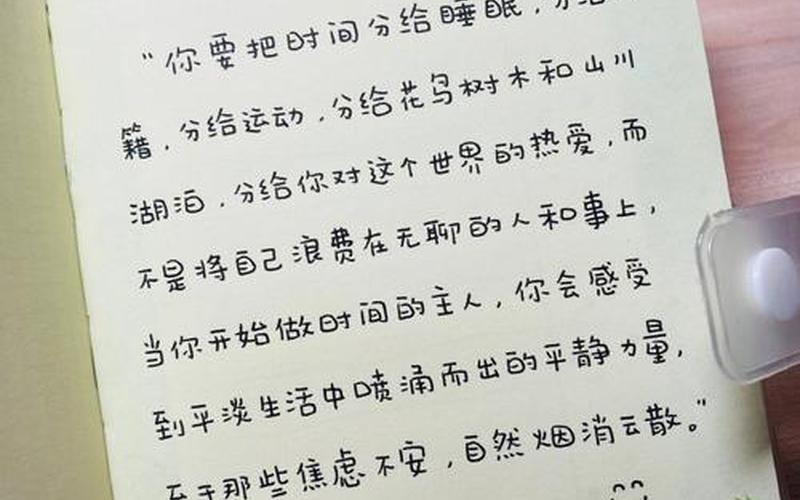 “你要把时间分给睡眠，分给
籍，分给运动，分给花鸟树木和山川
湖泊，分给你对这个世界的热爱，而
不是将自己浪费在无聊的人和事上，
当你开始做时间的主人，你会感受
到平淡生活中喷涌而出的平静力量，
至于那些焦虑不安，自然烟消云散。”